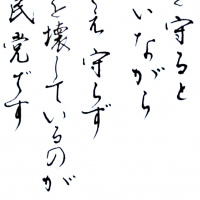 守ると
いながら
え守らず
を壊しているのが
民党です